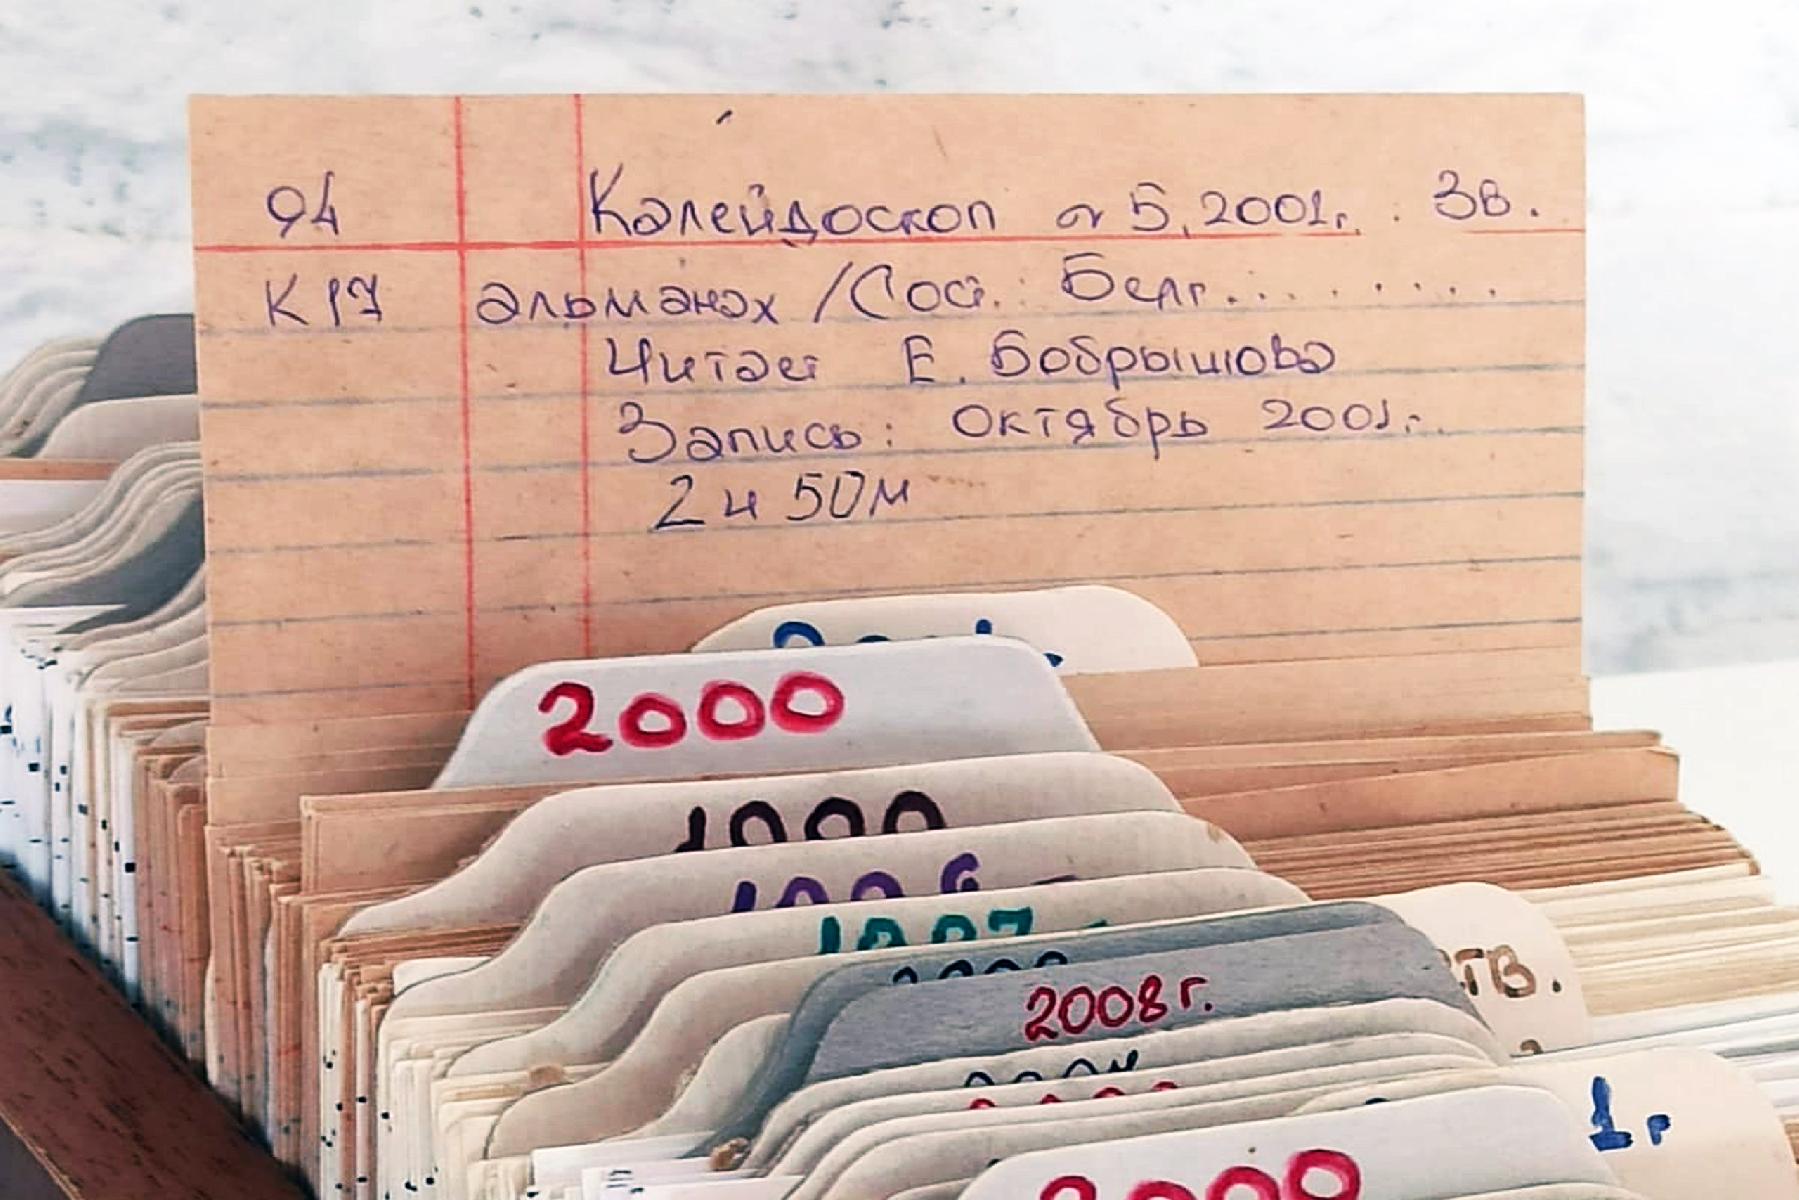 94 Калейдоскоп № 5, 2001г. 3в.
К 17 альманах /Сост. Белг.........
Читает Е. Бобрышова
Запись: Октябрь 2001г.
2 ч 50м
2000
1999
1997
2008г.
тв.
1г
2000